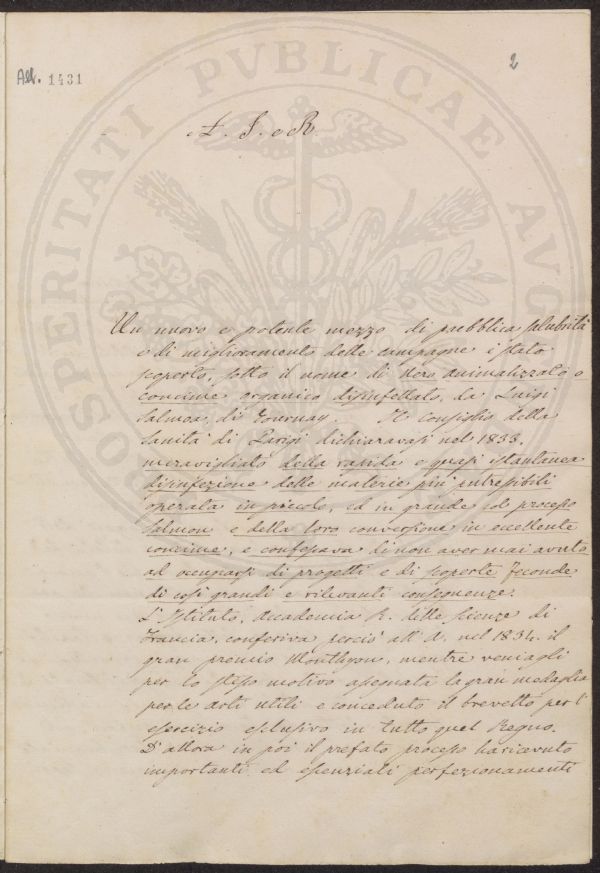 All. 1431
2
PROSPERITATI PVBLICAE AVG
A. I. e R.
Un nuovo e potente mezzo di pubblica salubrità
e di miglioramento delle campagne è stato
scoperto, sotto il nome di Nero animalizzato o
concime organico disinfettato, da Luigi
Salmon, di Tournay. Il Consiglio della
Sanità di Parigi dichiaravasi nel 1833.
meravigliato della rapida e quasi istantanea
disinfezione delle materie più intressibili
operata in piccolo, ed in grande sol processo
Salmon e della loro conversione in eccellente
concime, e confessava di non aver mai avuto
ad occuparsi di progetti e di scoperte feconde
di così grandi e rilevanti conseguenze.
L'Istituto, Accademia R. delle scienze di
Francia, conferiva perciò all' A. nel 1834. il
gran premio Monthyon, mentre veniagli
per lo stesso motivo assegnata la gran medaglia
per le arti utili e conceduto il brevetto per l'
esercizio esclusivo in tutto quel Regno.
D'allora in poi il prefato processo ha ricevuto
importanti ed essenziali perfezionamenti